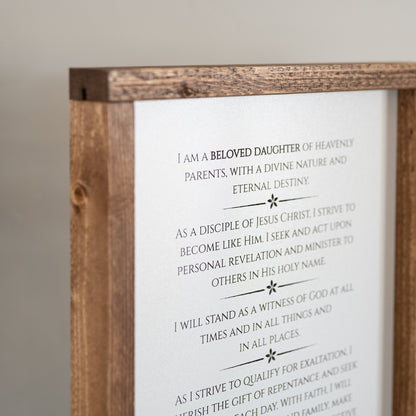 I AM A BELOVED DAUGHTER OF HEAVENLY
PARENTS, WITH A DIVINE NATURE AND
ETERNAL DESTINY.
AS A DISCIPLE OF JESUS CHRIST, I STRIVE TO
BECOME LIKE HIM. I SEEK AND ACT UPON
PERSONAL REVELATION AND MINISTER TO
OTHERS IN HIS HOLY NAME.
I WILL STAND AS A WITNESS OF GOD AT ALL
TIMES AND IN ALL THINGS AND
IN ALL PLACES.
AS I STRIVE TO QUALIFY FOR EXALTATION, I
CHERISH THE GIFT OF REPENTANCE AND SEEK
EACH DAY. WITH FAITH, I WILL
AND FAMILY, MAKE